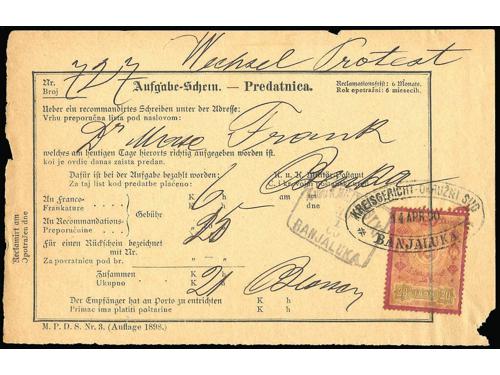 Wechsel Protest
Nr. 727 Aufgabe-Schein. — Predatnica. Reclamationsfrist: 6 Monate.
Broj Rok opotražni: 6 miesecih.
Ueber ein recommandirtes Schreiben unter der Adresse:
Vrhu preporučna lista pod naslovom:
Dr Frank
welches am heutigen Tage hierorts richtig aufgegeben worden ist.
koi je ovdie danas zaista predan.
Dafür ist bei der Aufgabe bezahlt worden: K. u. K. Militär-Postamt
Za taj list kod predatbe plaćeno:
An Franco- K h K h
Frankature 6 am
An Recommandations- Gebühr dne
Preporučnine 25
KREISGERICHT-OKRUŽNI SUD
14 APR. 00
BANJALUKA
BANJALUKA
Für einen Rückschein bezeichnet
mit Nr.
Za povratnicu pod br.
Zusammen K h
Ukupno K h
Der Empfänger hat an Porto zu entrichten K h
Primac ima platiti poštarine K h
M. P. D. S. Nr. 3. (Auflage 1898.)
Reclamirt am
Opotražen dne